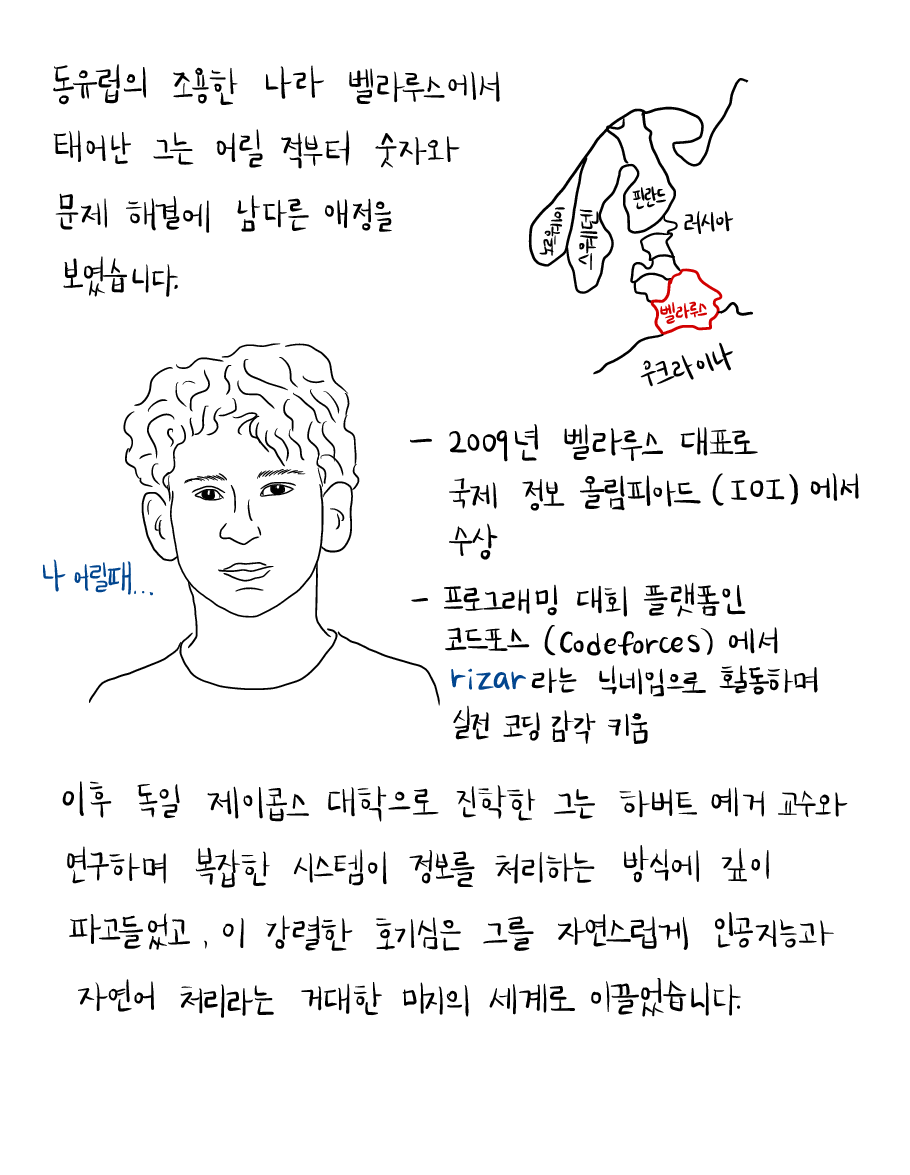 동유럽의 조용한 나라 벨라루스에서
태어난 그는 어릴 적부터 숫자와
문제 해결에 남다른 애정을
보였습니다.
노르웨이
스웨덴
핀란드
러시아
벨라루스
우크라이나
나 어릴때...
- 2009년 벨라루스 대표로
국제 정보 올림피아드 (IOI) 에서
수상
- 프로그래밍 대회 플랫폼인
코드포스 (Codeforces) 에서
rizar라는 닉네임으로 활동하며
실전 코딩 감각 키움
이후 독일 제이콥스 대학으로 진학한 그는 하버트 예거 교수와
연구하며 복잡한 시스템이 정보를 처리하는 방식에 깊이
파고들었고, 이 강렬한 호기심은 그를 자연스럽게 인공지능과
자연어 처리라는 거대한 미지의 세계로 이끌었습니다.